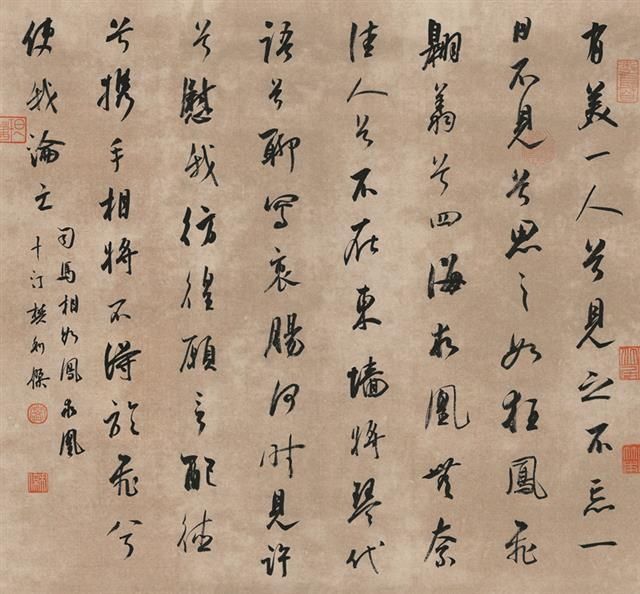 有美一人兮見之不忘一
日不見兮思之如狂鳳飛
翱翔兮四海求凰無奈
佳人兮不在東墻將琴代
語兮聊寫衷腸何時見許
兮慰我彷徨願言配德
兮攜手相將不得於飛兮
使我淪亡
司馬相如鳳求凰
十汀樊利傑